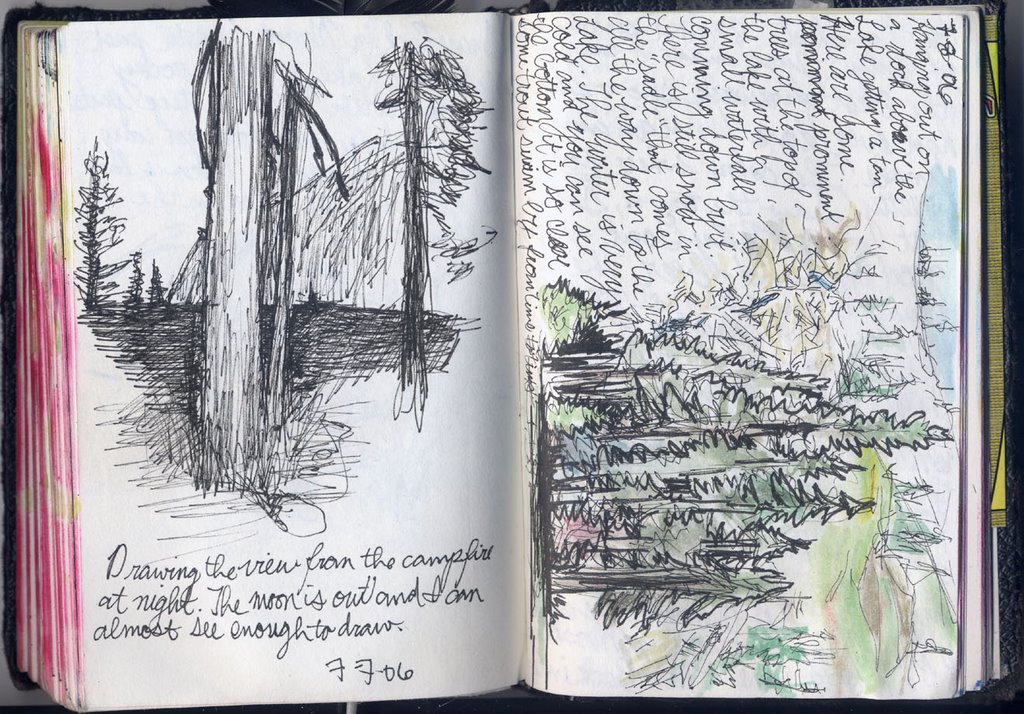 Drawing the view from the campfire
at night. The moon is out and I can
almost see enough to draw.
7 7-06
7-8-06
Hanging out on
a dock above the
Lake getting a tan ~
Here are some
prominent
trees at the top of
the lake with a
small waterfall
comming down but
there is still snow in
the "sadle" that comes
all the way down to the
Lake. The water is very
cold and you can see
the bottom it is so clear
some trout swim by from time to time